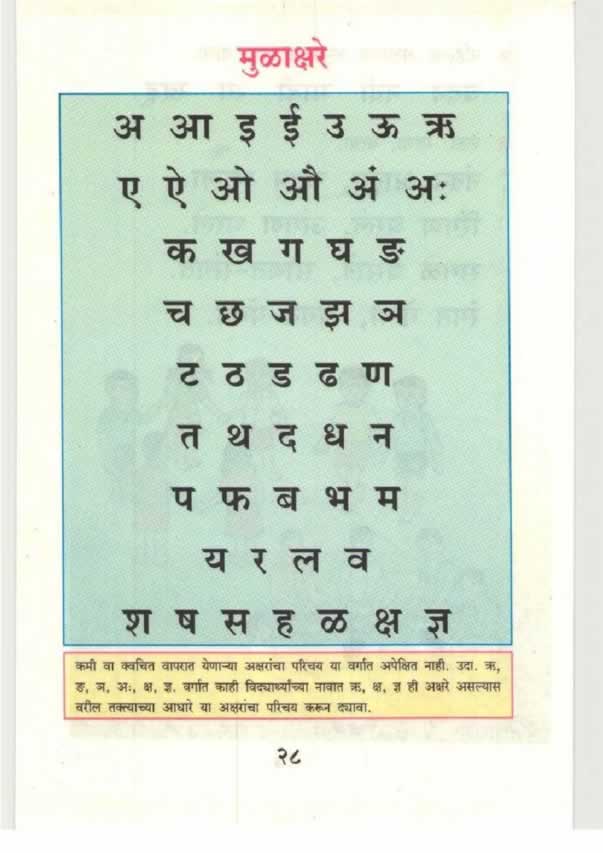 मुळाक्षरे
अ आ इ ई उ ऊ ऋ
ए ऐ ओ औ अं अः
क ख ग घ ङ
च छ ज झ ञ
ट ठ ड ढ ण
त थ द ध न
प फ ब भ म
य र ल व
श ष स ह ळ क्ष ज्ञ
कमी वा क्वचित वापरात येणाऱ्या अक्षरांचा परिचय या वर्गात अपेक्षित नाही. उदा. ऋ,
ङ, ञ, अः, क्ष, ज्ञ. वर्गात काही विद्यार्थ्यांच्या नावात ऋ, क्ष, ज्ञ ही अक्षरे असल्यास
वरील तक्त्याच्या आधारे या अक्षरांचा परिचय करून द्यावा.
२८